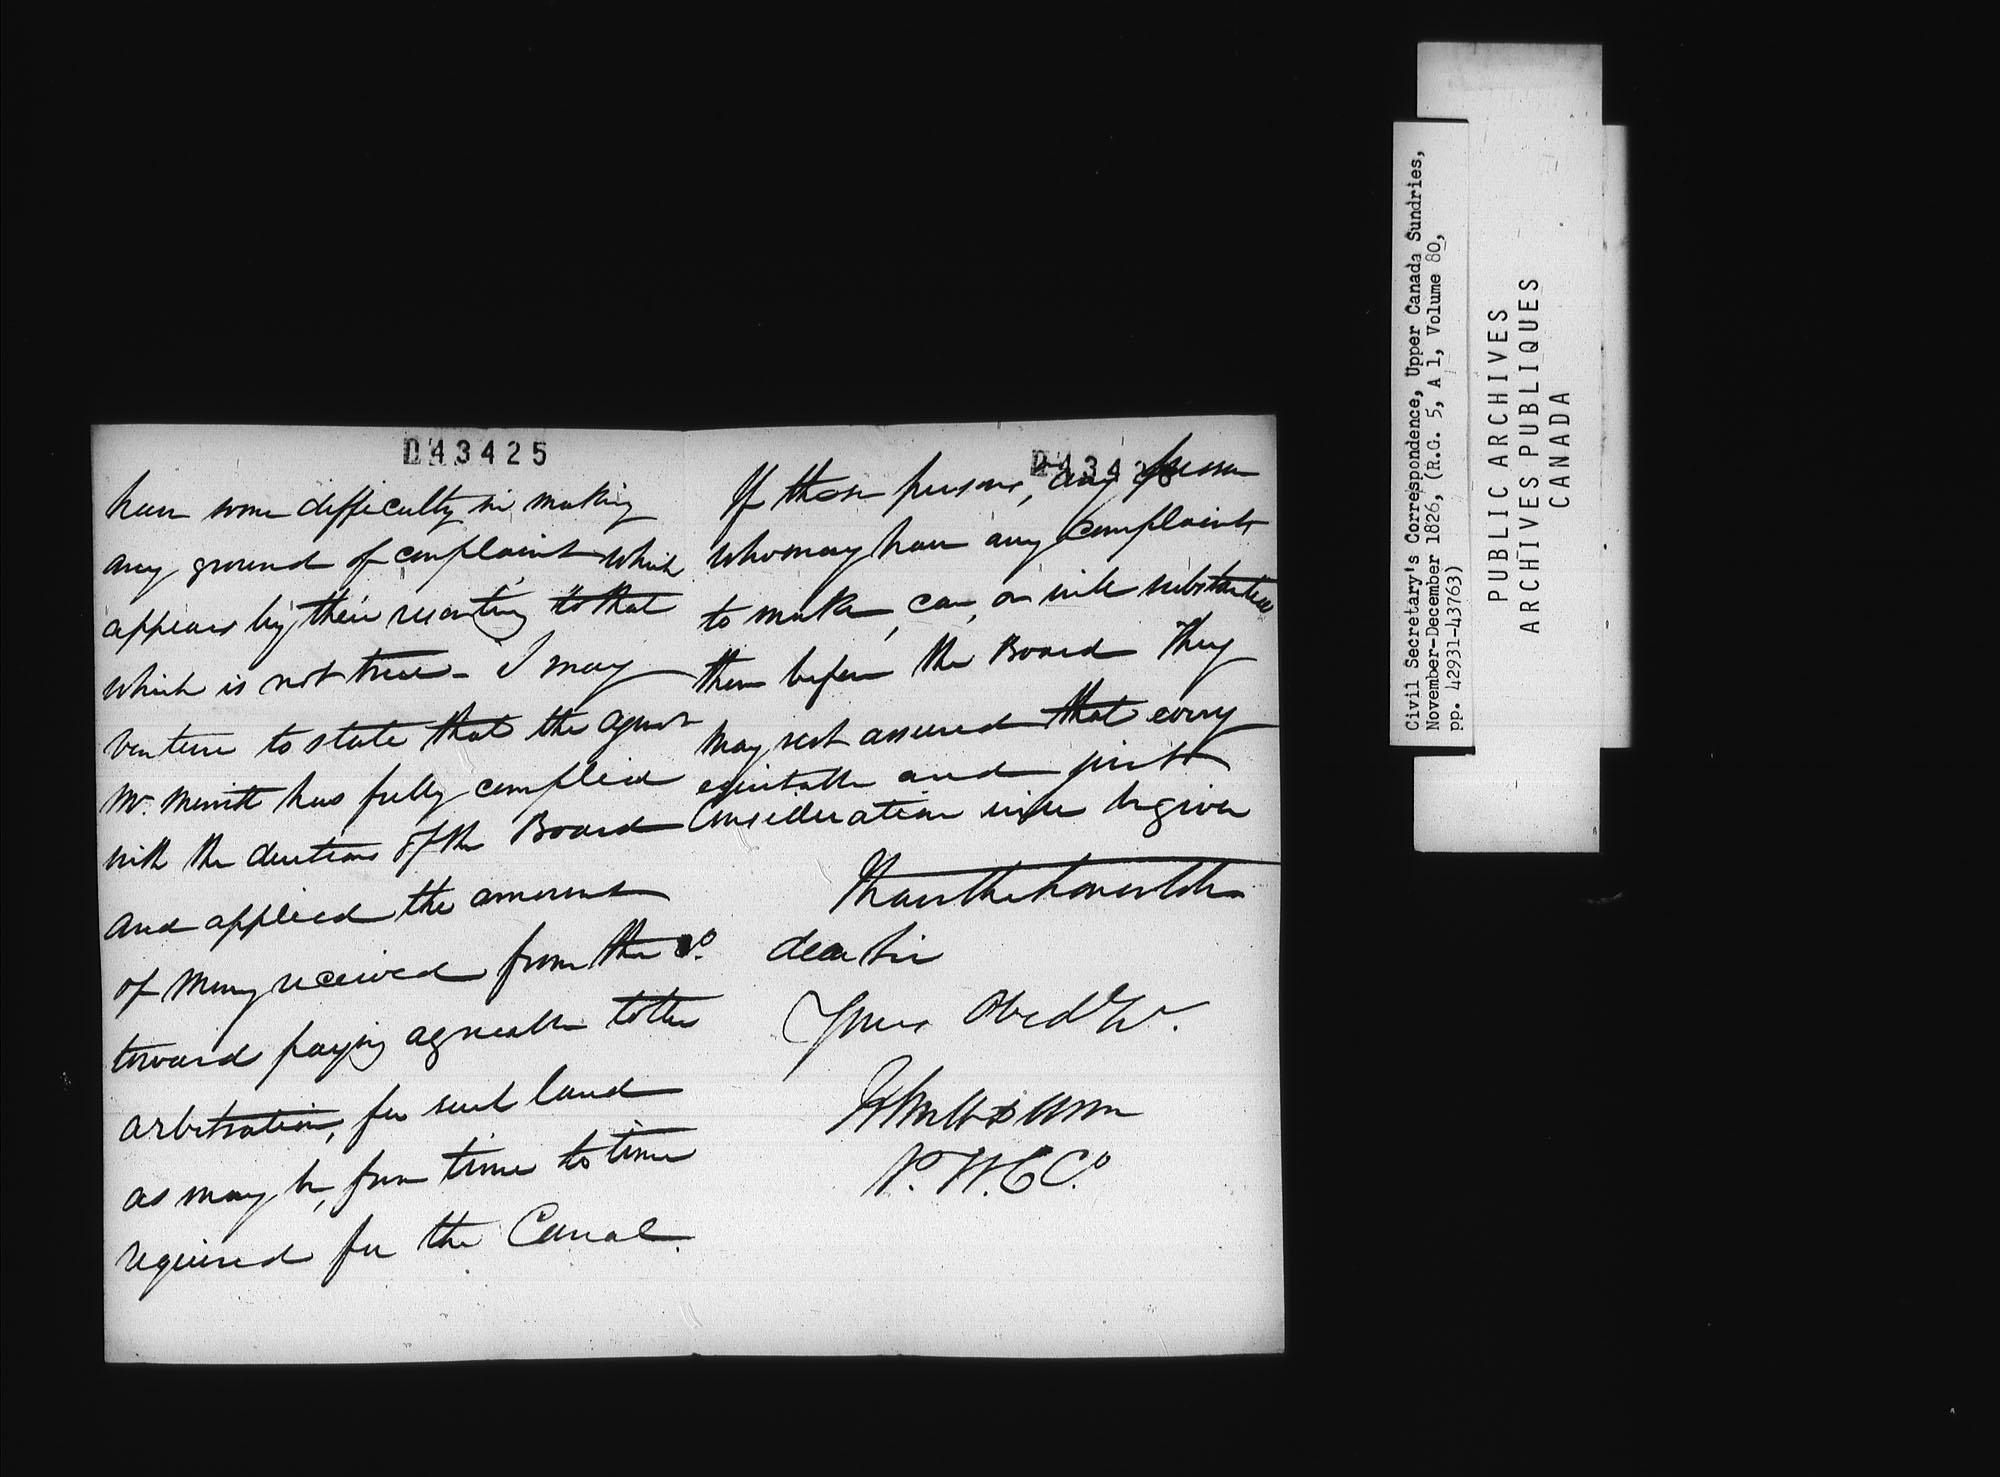 043425
have some difficulty in making
any ground of complaint which
appears by their resorting to that
which is not true - I may
venture to state that the agent
Mr. Merritt has fully complied
with the directions of the Board
and applied the amount
of Money received from the Co.
toward paying agreeable to the
arbitration, for such land
as may be, from time to time
required for the Canal.
If these persons, or any person
who may have any complaints
to make, can, or will substantiate
them before the Board They
may rest assured that every
equitable and just
Consideration will be given
I have the honor to be
dear Sir
Your Obed St.
John H Dunn
P. W. C Co.
Civil Secretary's Correspondence, Upper Canada Sundries,
November-December 1826, (R.G. 5, A 1, Volume 80,
pp. 42931-43763)
PUBLIC ARCHIVES
ARCHIVES PUBLIQUES
CANADA